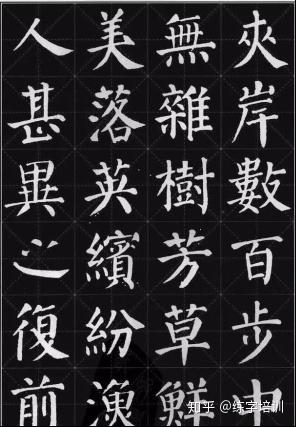 夾岸數百步中
無雜樹芳草鮮
美落英繽紛漁
人甚異之復前
知乎 @练字培训